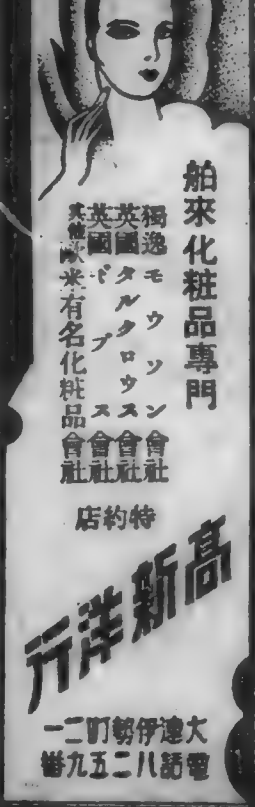 舶來化粧品專門
獨逸モウソン會社
英國タルタロウス會社
英國パプス會社
其他歐米有名化粧品會社
特約店
高新洋行
大連伊勢町二一
電話八二五九番